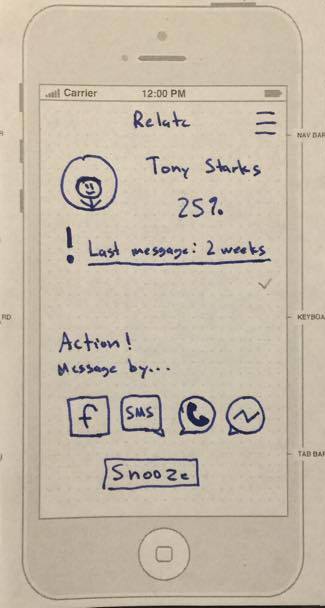 Carrier 12:00 PM
Relate
NAV BAR
Tony Starks
25%
! Last message: 2 weeks
KEYBOA
RD
Action!
Message by...
f SMS
TAB BAR
Snooze